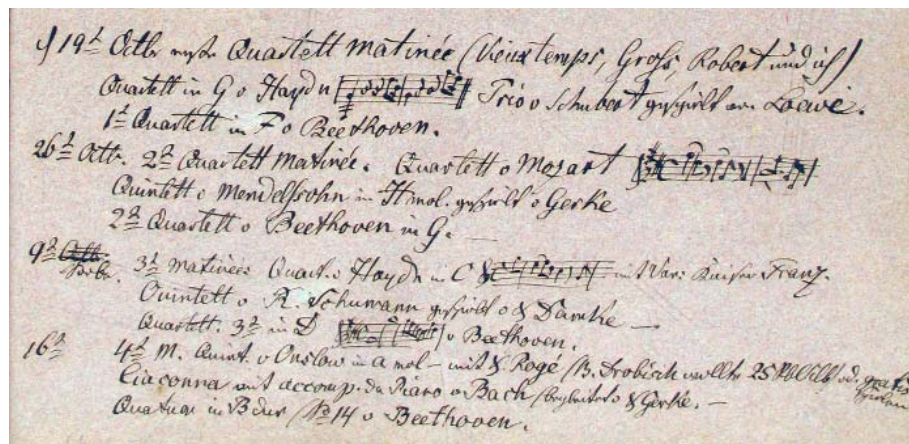 19t Octbr Quartett matinée (Vieuxtemps, Groß, Robert und ich)
Quartett in G v Haydn Trio v Schubert gespielt von Loewe.
1t Quartett in F v Beethoven.
26t Octb. 2t Quartett matinée. Quartett v Mozart
Quintett v Mendelssohn in H mol. gespielt v Gerke
2t Quartett v Beethoven in G. —
9t Octb.
Nvbr. 3t Matinee: Quart. v Haydn in C mit Var: Kaiser Franz.
Quintett v R. Schumann gespielt v Damke —
Quartett. 3t in D v Beethoven.
16t 4t M. Quint. v Onslow in a mol — mit Rogé (B. Drobisch wollte 25 od. gratis
spielen
Ciaconna mit accomp. da Piano v Bach (begleitet v Gerke. —
Quatuor in B dur No 14 v Beethoven.